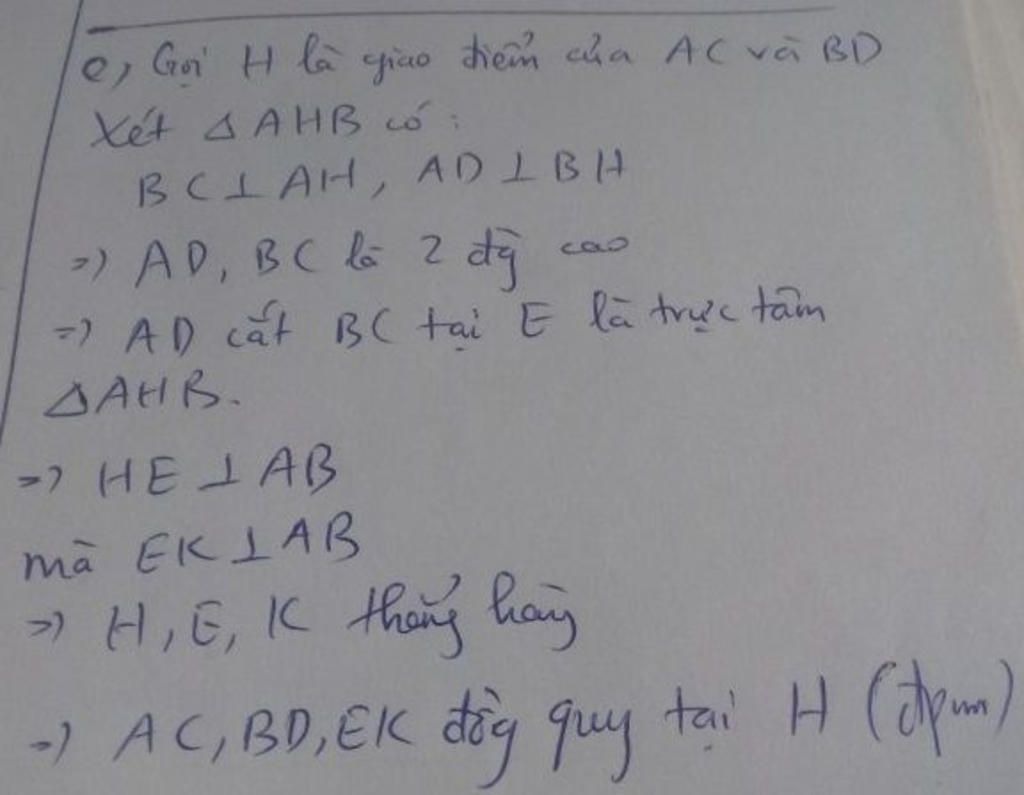 e, Gọi H là giao điểm của AC và BD
Xét Δ AHB có :
BC ⊥ AH, AD ⊥ BH
=> AD, BC là 2 đg cao
=> AD cắt BC tại E là trực tâm
ΔAHB.
=> HE ⊥ AB
mà EK ⊥ AB
=> H, E, K thẳng hàng
=> AC, BD, EK đồg quy tại H (đpcm)